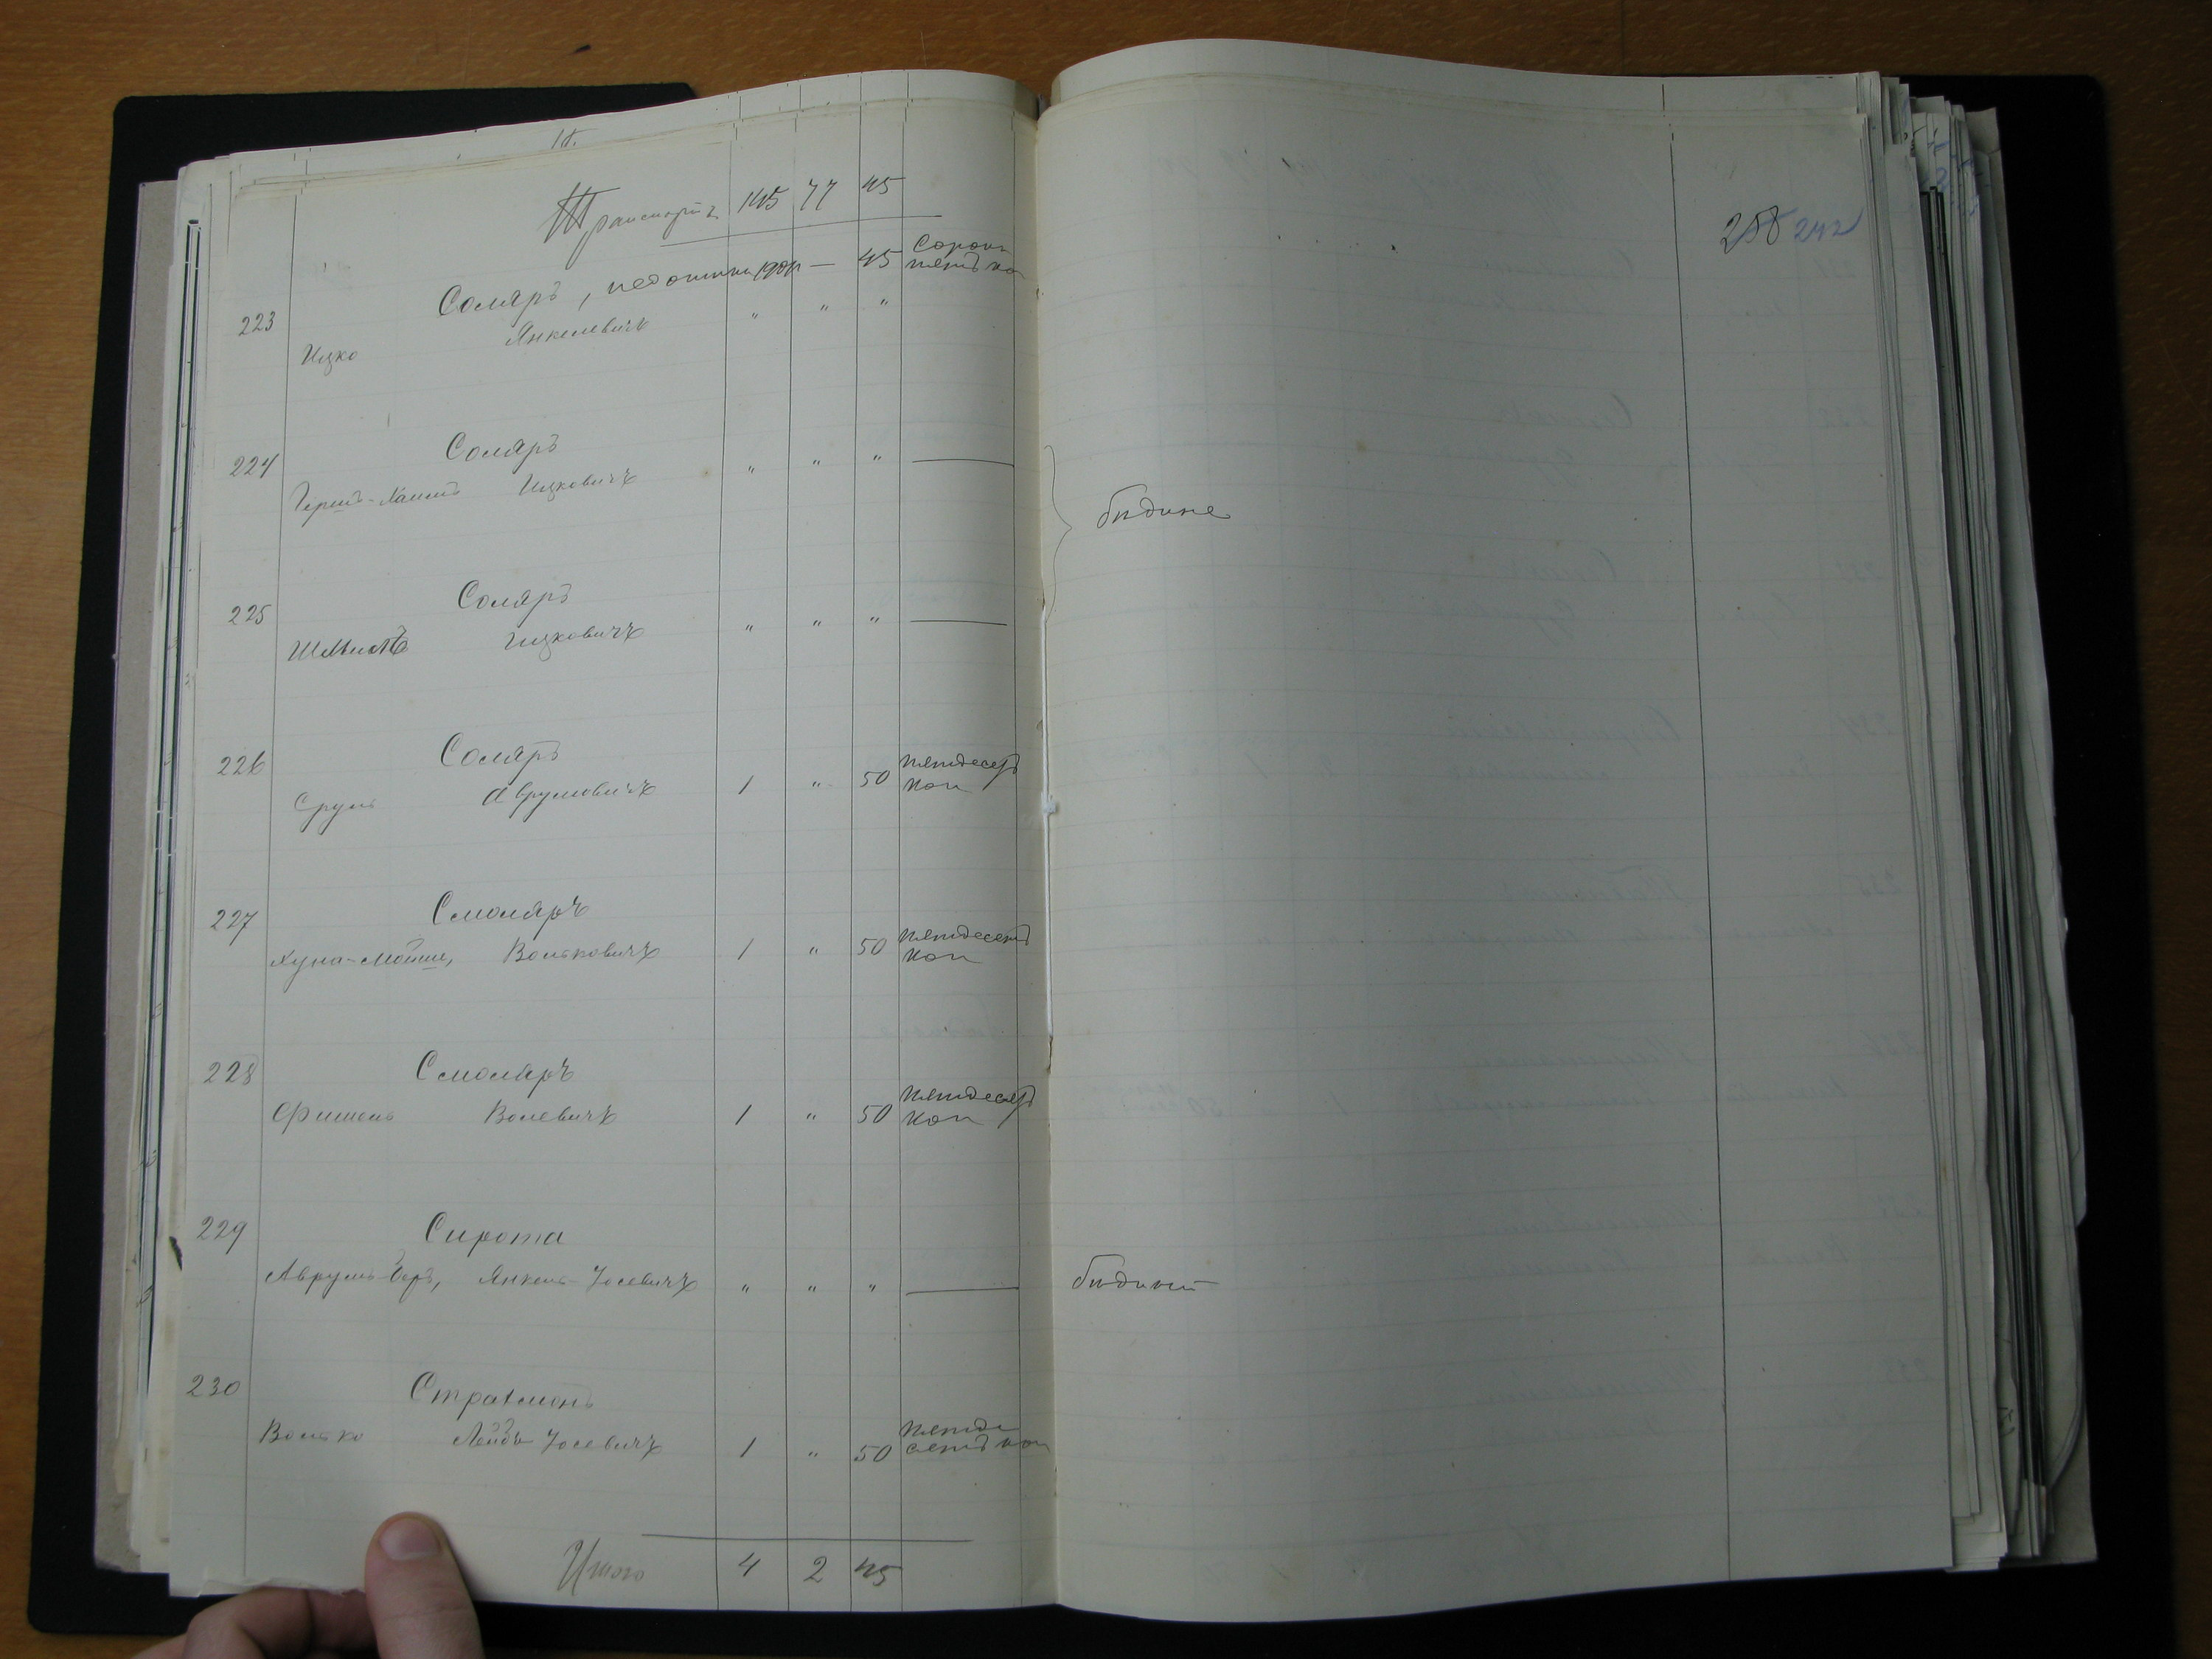 Транспортъ 145 77 45
258 242
223 Соляръ, недоимки 1901 — 45 Сорокъ пять коп
Ицко Янкелевичъ " " "
224 Соляръ
Герш-Хаимъ Ицковичъ " " " —
бѣдные
225 Соляръ
Шмиль Ицковичъ " " " —
226 Соляръ
Сруль Аврумовичъ 1 " 50 пятдесятъ коп
227 Смоляръ
Хуна-Мойше, Вольковичъ 1 " 50 пятдесятъ коп
228 Смоляръ
Фишель Волевичъ 1 " 50 пятдесятъ коп
229 Сирота
Аврумъ-Беръ, Янкель-Іосевичъ " " " —
бѣдный
230 Страхманъ
Волько Лейбъ-Іосевичъ 1 " 50 пятдесятъ коп
Итого 4 2 45